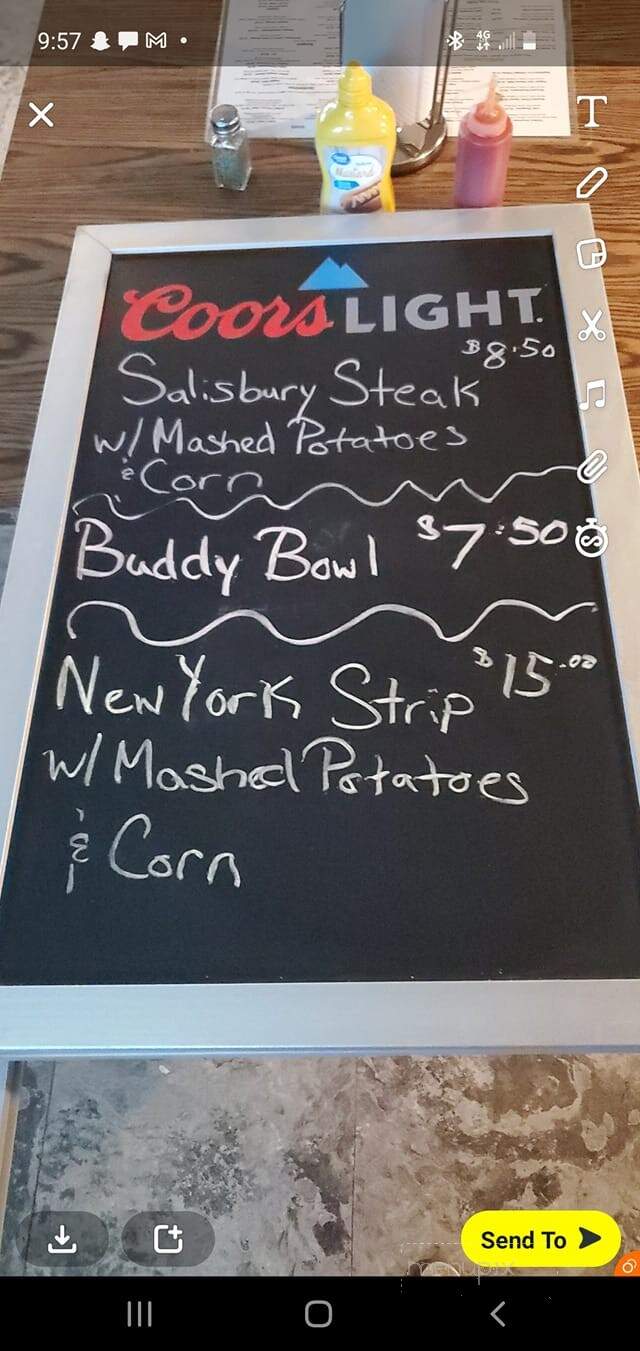 9:57
4G
T
Mustard
Coors LIGHT
$8.50
Salisbury Steak
w/ Mashed Potatoes
& Corn
Buddy Bowl $7.50
$15.00
New York Strip
w/ Mashed Potatoes
& Corn
Send To
menupix